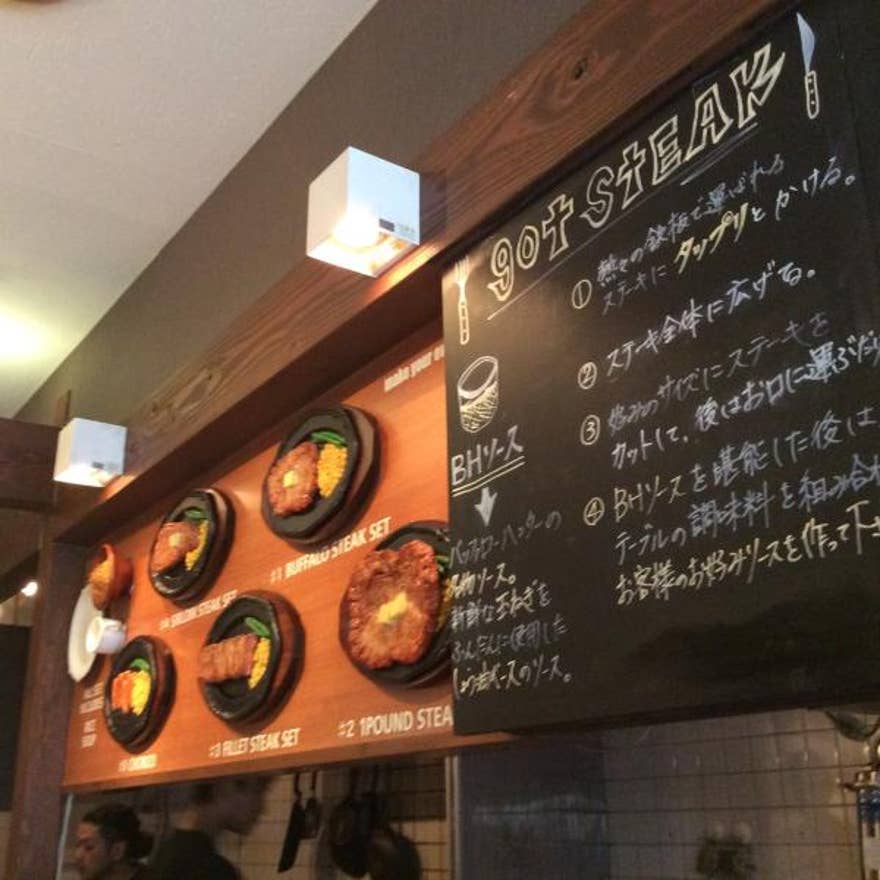 got STEAK
① 熱々の鉄板で運ばれる
ステーキに タップリと かける。
② ステーキ全体に広げる。
③ 好みのサイズにステーキを
カットして、後はお口に運ぶだけ
④ BHソースを堪能した後は、
テーブルの調味料を組み合わ
お客様のお好みソースを作って下さ
BHソース
バッファローハンターの
名物ソース。
新鮮な玉ねぎを
ふんだんに使用した
しょう油ベースのソース。
make your
#1 BUFFALO STEAK SET
#4 SIRLOIN STEAK SET
#2 1POUND STEA
#3 FILLET STEAK SET